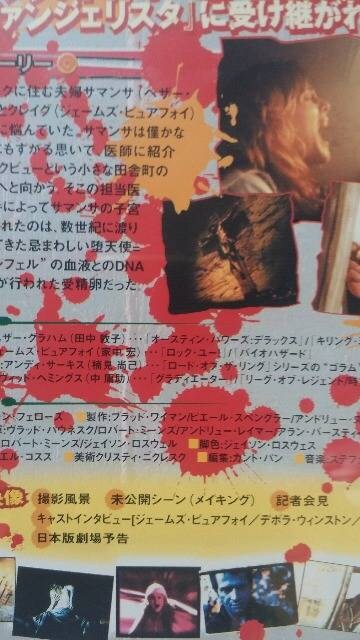 ァンジェリスタ』に受け継がれ
ーリー
クに住む夫婦サマンサ(ヘザー・
とクレイグ(ジェームズ・ピュアフォイ)
に悩んでいた。サマンサは僅かな
にもすがる思いで、医師に紹介
クビューという小さな田舎町の
へと向かう。そこの担当医
によってサマンサの子宮
れたのは、数世紀に渡り
てきた忌まわしい堕天使=
ンフェル"の血液とのDNA
が行われた受精卵だった
ザー・グラハム(田中 敦子)・・・「オースティン・パワーズ:デラックス」/「キリング・
ームズ・ピュアフォイ(家中 宏)・・・「ロック・ユー!」/「バイオハザード」
:アンディ・サーキス(楠見 尚己)・・・「ロード・オブ・ザ・リング」シリーズの"ゴラム"
ヴィッド・ヘミングス(中 庸助)・・・「グラディエーター」/「リーグ・オブ・レジェンド/
ン・フェローズ ■製作:ブラッド・ワイマン/ピエール・スペングラー/アンドリュー・
:ヴラッド・パウネスク/ロバート・ミーンズ/アンドリュー・レイマー/アラン・バースティ
ロバート・ミーンズ/ジェイソン・ロスウェル ■脚色:ジェイソン・ロスウェス
エル・コスス ■美術クリスティ・ニクレスク ■編集:カント・パン ■音楽:ステフ
像 撮影風景 未公開シーン(メイキング) 記者会見
キャストインタビュー[ジェームズ・ピュアフォイ/デボラ・ウィンストン/
日本版劇場予告